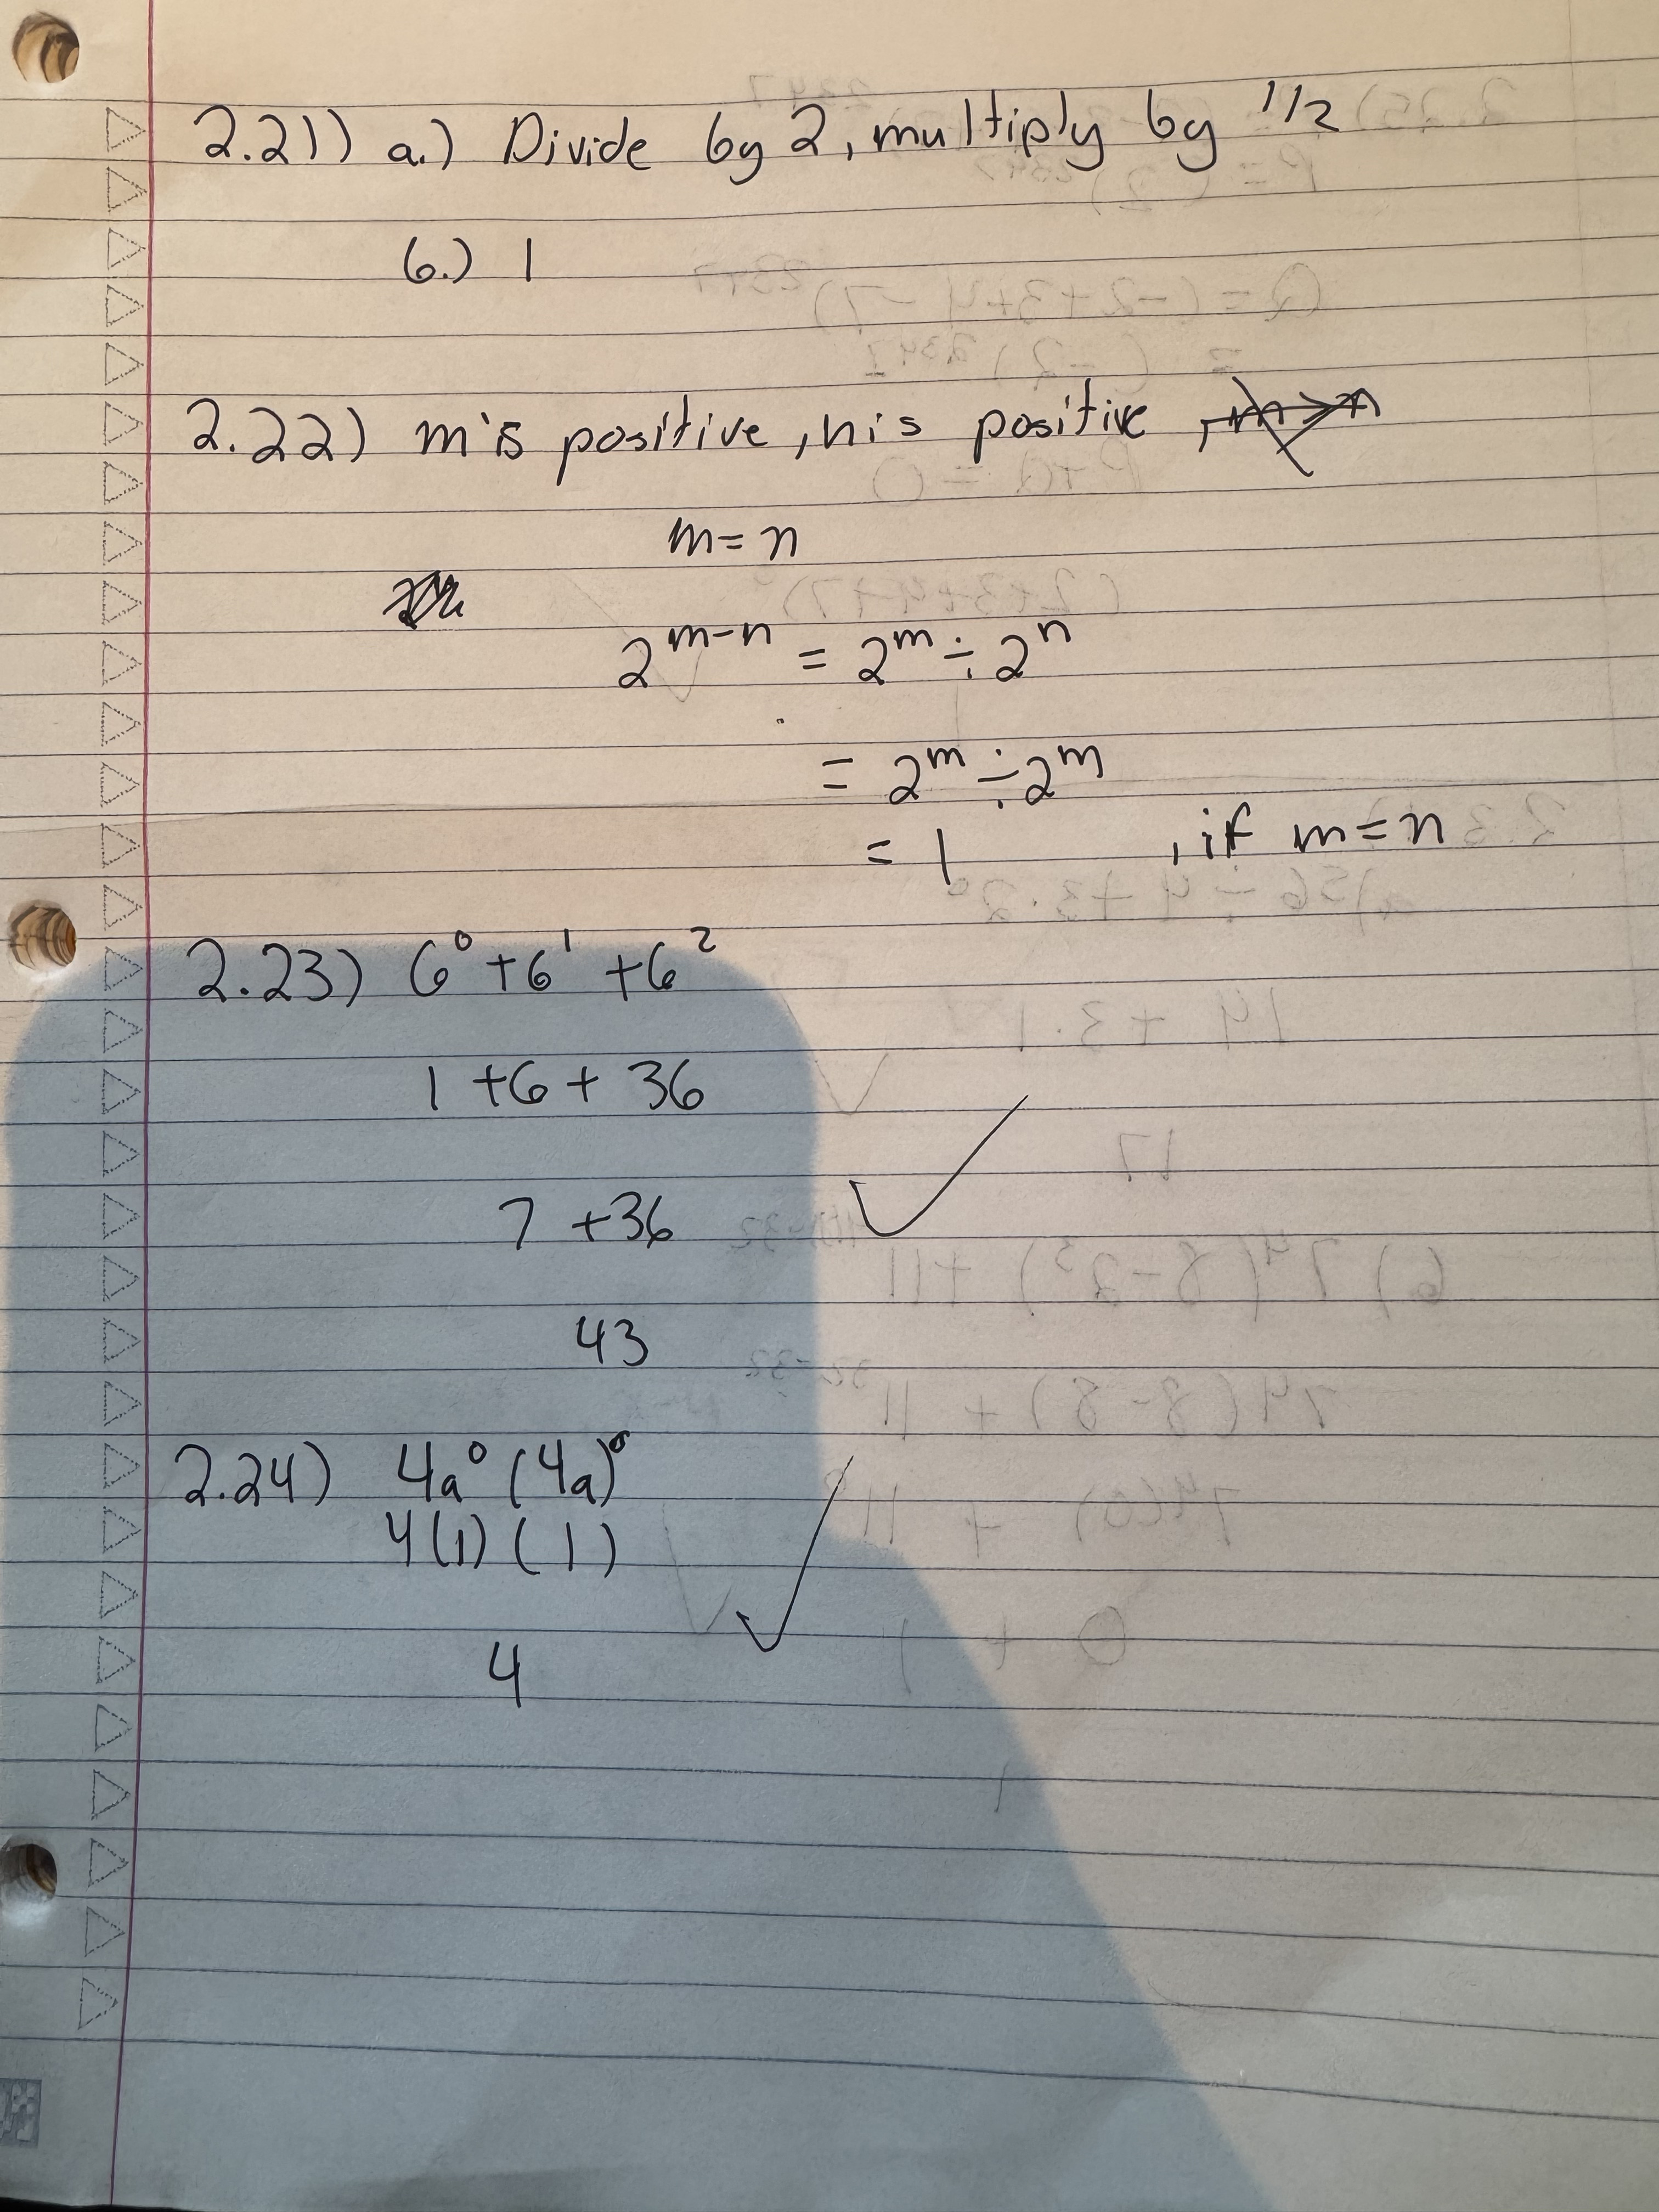 2.21) a.) Divide by 2, multiply by 1/2
b.) 1
2.22) m is positive, n is positive, m>n
m = n
2^m-n = 2^m ÷ 2^n
= 2^m ÷ 2^m
= 1 , if m = n
2.23) 6^0 + 6^1 + 6^2
1 + 6 + 36
7 + 36
43
2.24) 4a^0 (4a)^0
4(1) (1)
4